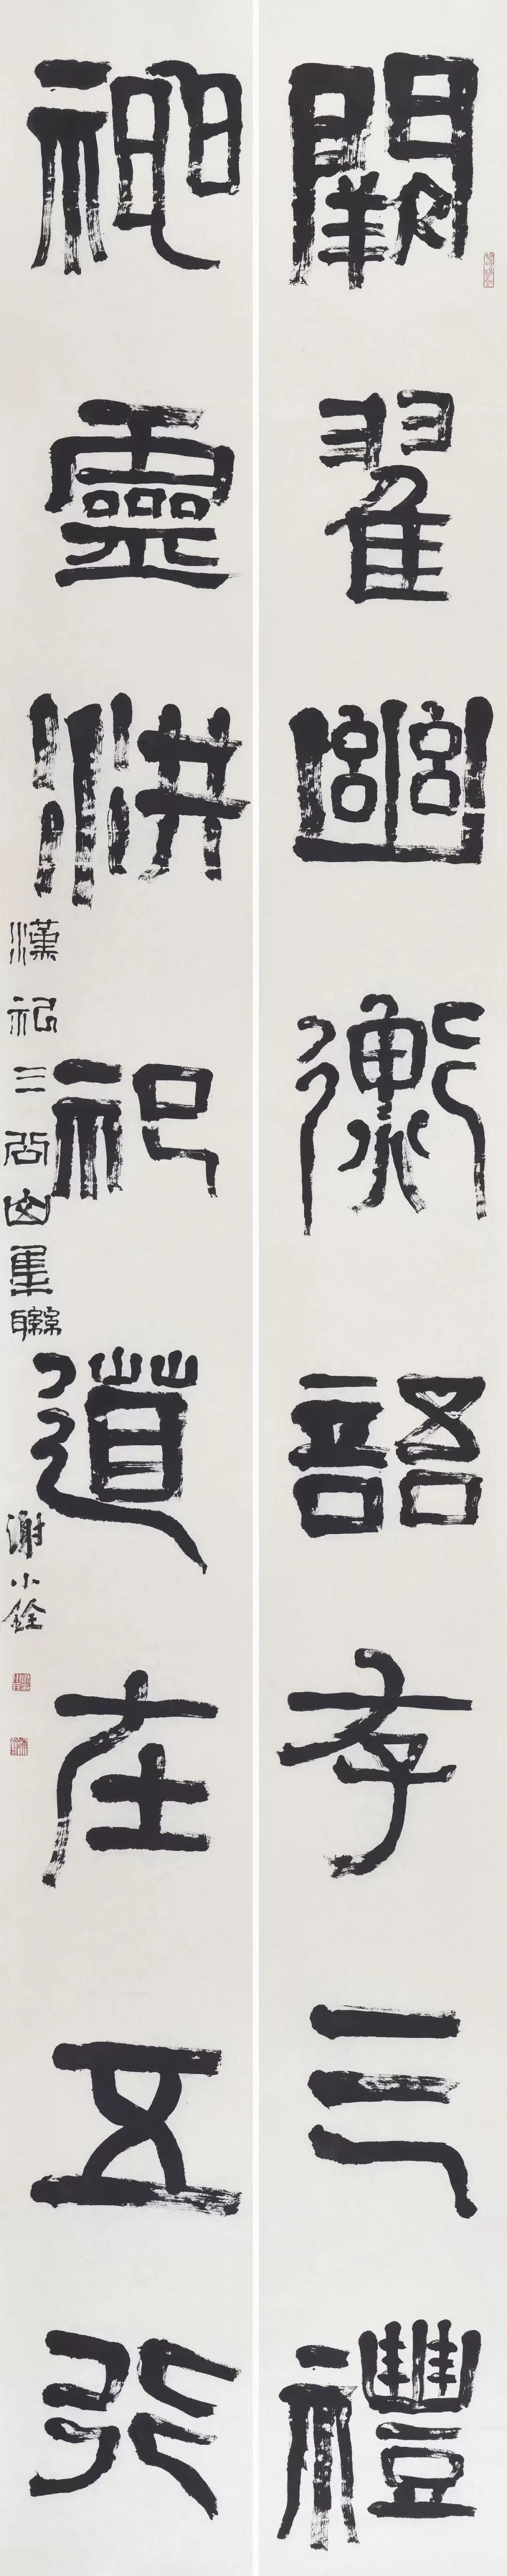 闕翟幽衡語存三禮
神靈洪祀道在五行
漢祀三公山集聯
謝小銓